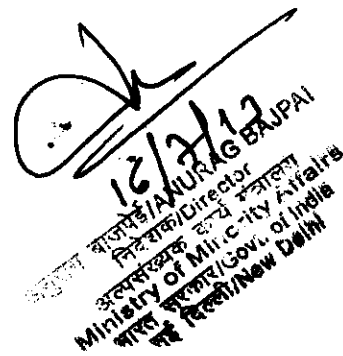 12/7/17
अनुराग बाजपेई/ANURAG BAJPAI
निदेशक/Director
अल्पसंख्यक कार्य मंत्रालय
Ministry of Minority Affairs
भारत सरकार/Govt. of India
नई दिल्ली/New Delhi